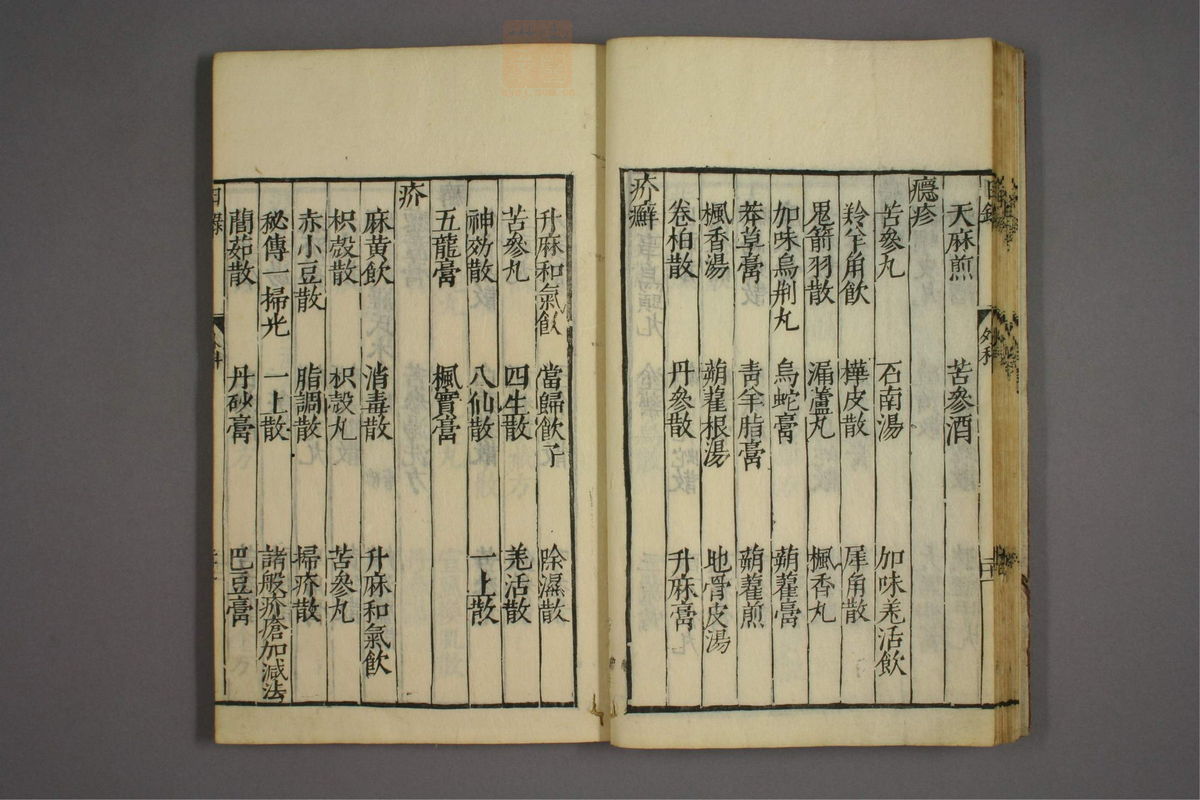 目錄 外科
天麻煎 苦參酒
癮疹
苦參丸 石南湯 加味羌活飲
羚羊角飲 樺皮散 犀角散
鬼箭羽散 漏蘆丸 楓香丸
加味烏荆丸 烏蛇膏 蒴藋膏
莽草膏 青羊脂膏 蒴藋煎
楓香湯 蒴藋根湯 地骨皮湯
卷柏散 丹參散 升麻膏
疥癬
升麻和氣飲 當歸飲子 除濕散
苦參丸 四生散 羌活散
神効散 八仙散 一上散
五龍膏 楓實膏
疥
麻黄飲 消毒散 升麻和氣飲
枳殻散 枳殻丸 苦參丸
赤小豆散 脂調散 掃疥散
秘傳一掃光 一上散 諸般疥瘡加減法
藺茹散 丹砂膏 巴豆膏
目錄 外科